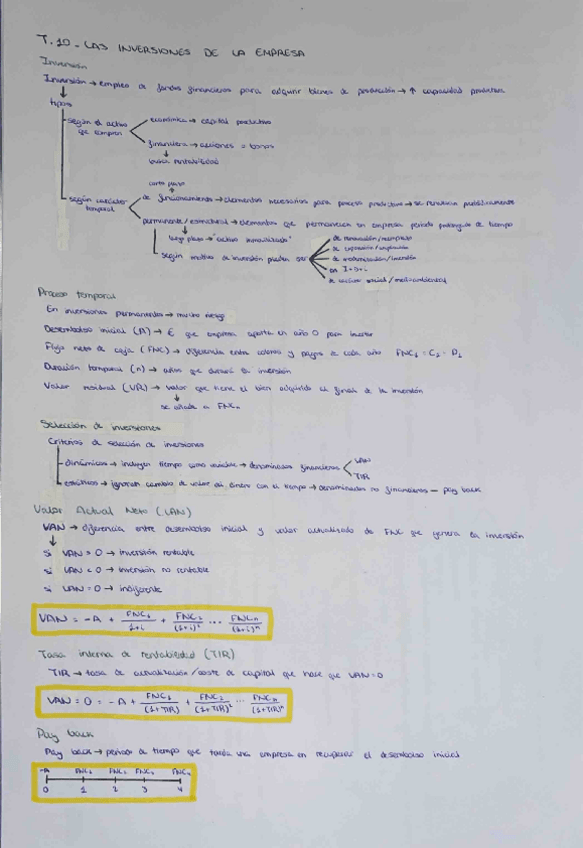 T.10.- LAS INVERSIONES DE LA EMPRESA
Inversión
Inversión → empleo de fondos financieros para adquirir bienes de producción → ↑ capacidad productiva
tipos
según el activo que compren
económica → capital productivo
financiera → acciones o bonos
busca rentabilidad
según carácter temporal
corto plazo
de funcionamiento → elementos necesarios para proceso productivo → se renuevan periódicamente
permanente/estructural → elementos que permanecen en empresa periodo prolongado de tiempo
largo plazo → "activo inmovilizado"
según motivo de inversión pueden ser
de renovación/reemplazo
de expansión/ampliación
de modernización/
en I+D+i
de carácter social/medioambiental
Proceso temporal
En inversiones permanentes → mucho riesgo
Desembolso inicial (A) → € que empresa aporta en año 0 para invertir
Flujo neto de caja (FNC) → diferencia entre cobros y pagos de cada año FNC₁ = C₁ - P₁
Duración temporal (n) → años que durará la inversión
Valor residual (VR) → valor que tiene el bien adquirido al final de la inversión
se añade a FNCₙ
Selección de inversiones
Criterios de selección de inversiones
dinámicos → incluyen tiempo como variable → denominados financieros
VAN
TIR
estáticos → ignoran cambio de valor del dinero con el tiempo → denominados no financieros — pay back
Valor Actual Neto (VAN)
VAN → diferencia entre desembolso inicial y valor actualizado de FNC que genera la inversión
si VAN > 0 → inversión rentable
si VAN < 0 → inversión no rentable
si VAN = 0 → indiferente
VAN = -A + FNC₁/(1+i) + FNC₂/(1+i)² ... FNCₙ/(1+i)ⁿ
Tasa interna de rentabilidad (TIR)
TIR → tasa de actualización/coste de capital que hace que VAN=0
VAN = 0 = -A + FNC₁/(1+TIR) + FNC₂/(1+TIR)² ... FNCₙ/(1+TIR)ⁿ
Pay back
Pay back → periodo de tiempo que tarda una empresa en recuperar el desembolso inicial
-A FNC₁ FNC₂ FNC₃ FNC₄
0 1 2 3 4